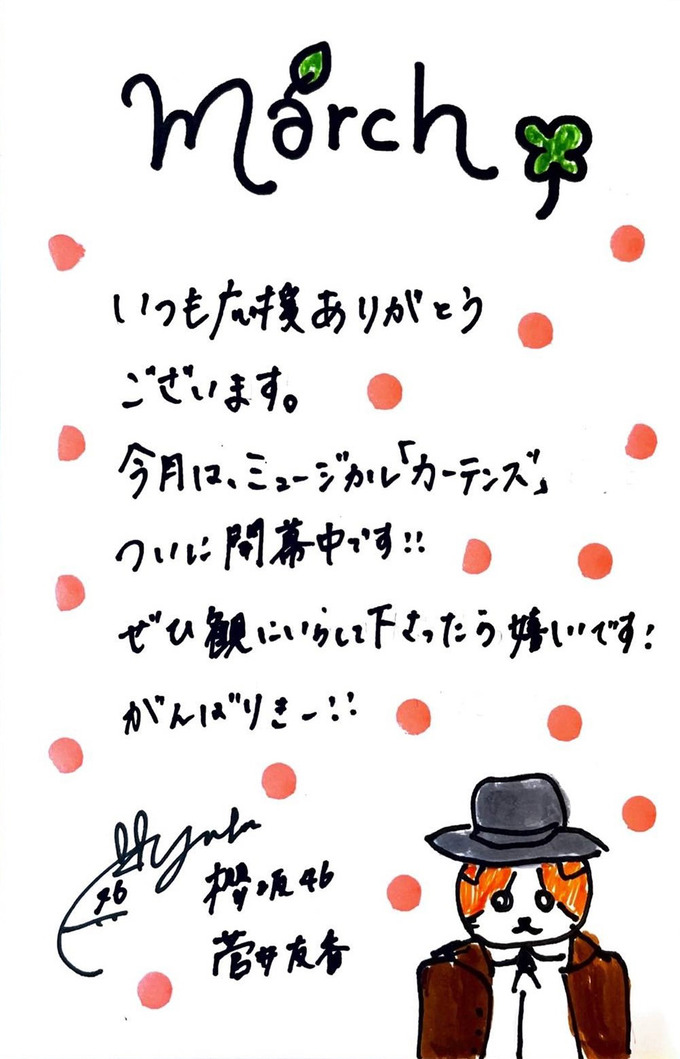 March
いつも応援ありがとう
ございます。
今月は、ミュージカル「カーテンズ」
ついに開幕中です!!
ぜひ観にいらして下さったら嬉しいです!
がんばりきー!!
46
櫻坂46
菅井友香